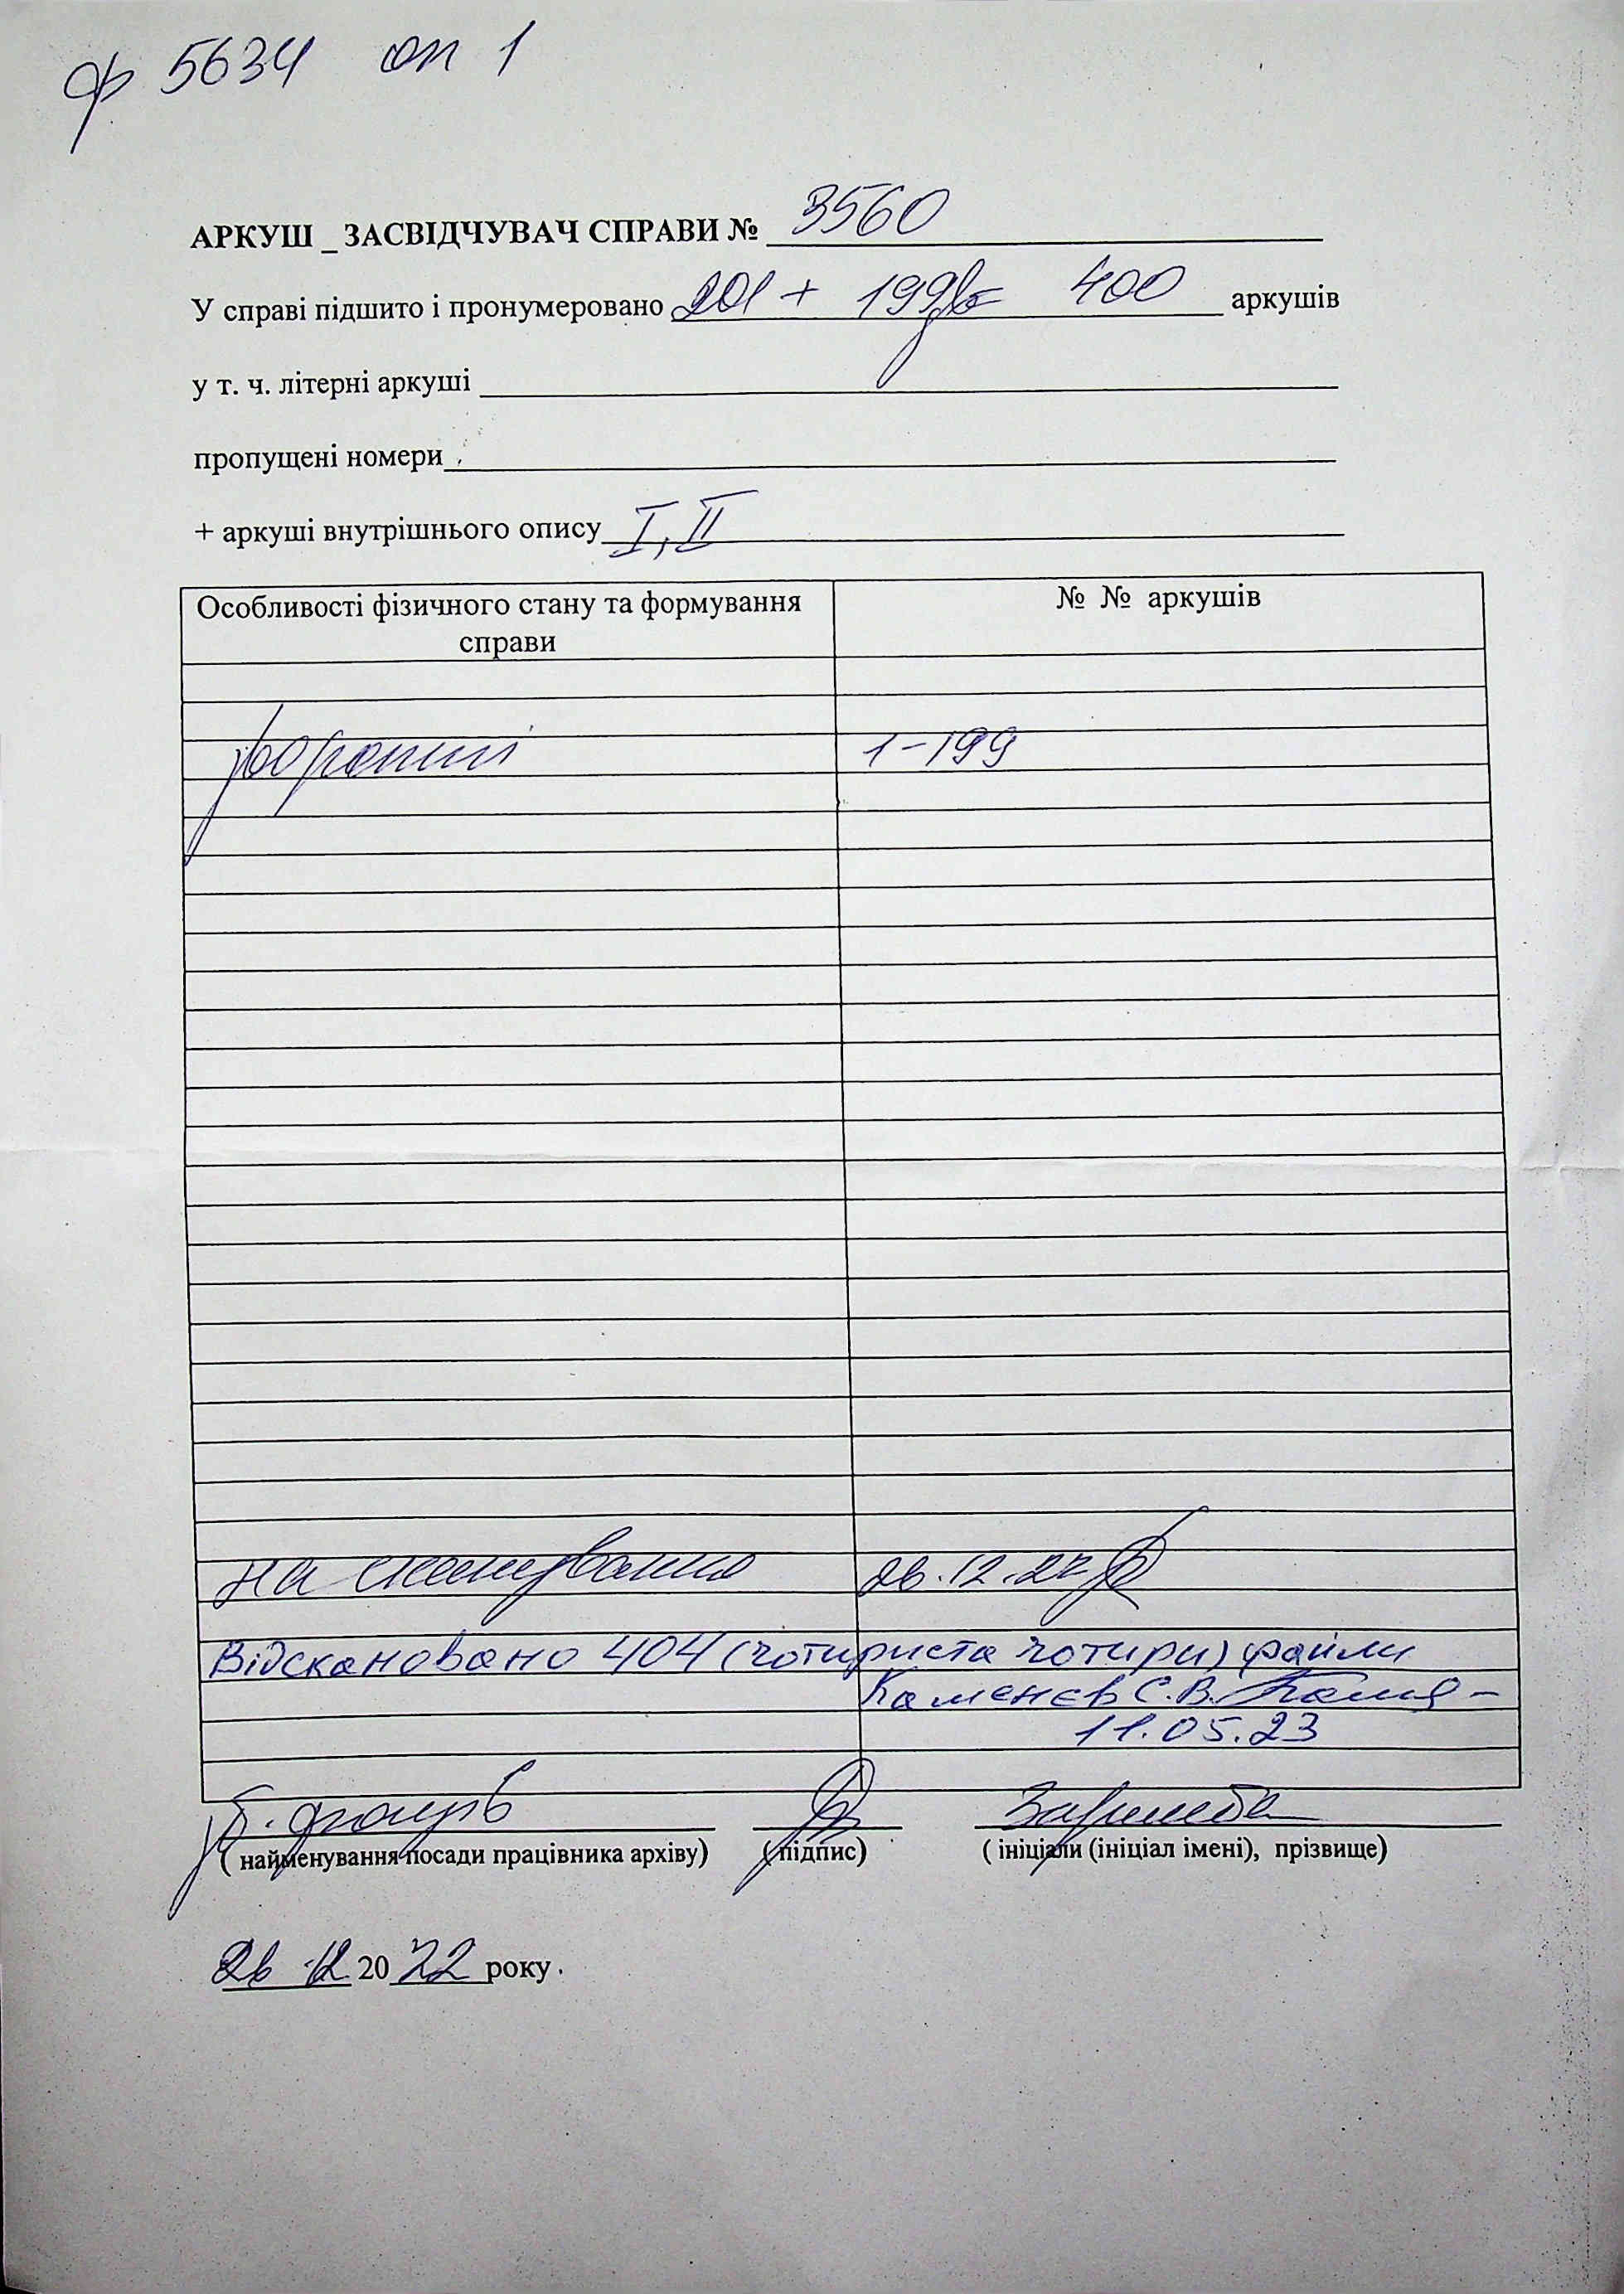 ф 5634 оп 1
АРКУШ _ ЗАСВІДЧУВАЧ СПРАВИ № 3560
У справі підшито і пронумеровано 201 + 199 400 аркушів
у т. ч. літерні аркуші
пропущені номери
+ аркуші внутрішнього опису I, II
Особливості фізичного стану та формування справи
№ № аркушів
1-199
на сканування 26.12.22
Відскановано 404 (чотириста чотири) файли
Каменєв С.В.
11.05.23
(найменування посади працівника архіву) (підпис) (ініціали (ініціал імені), прізвище)
26 12 2022 року.